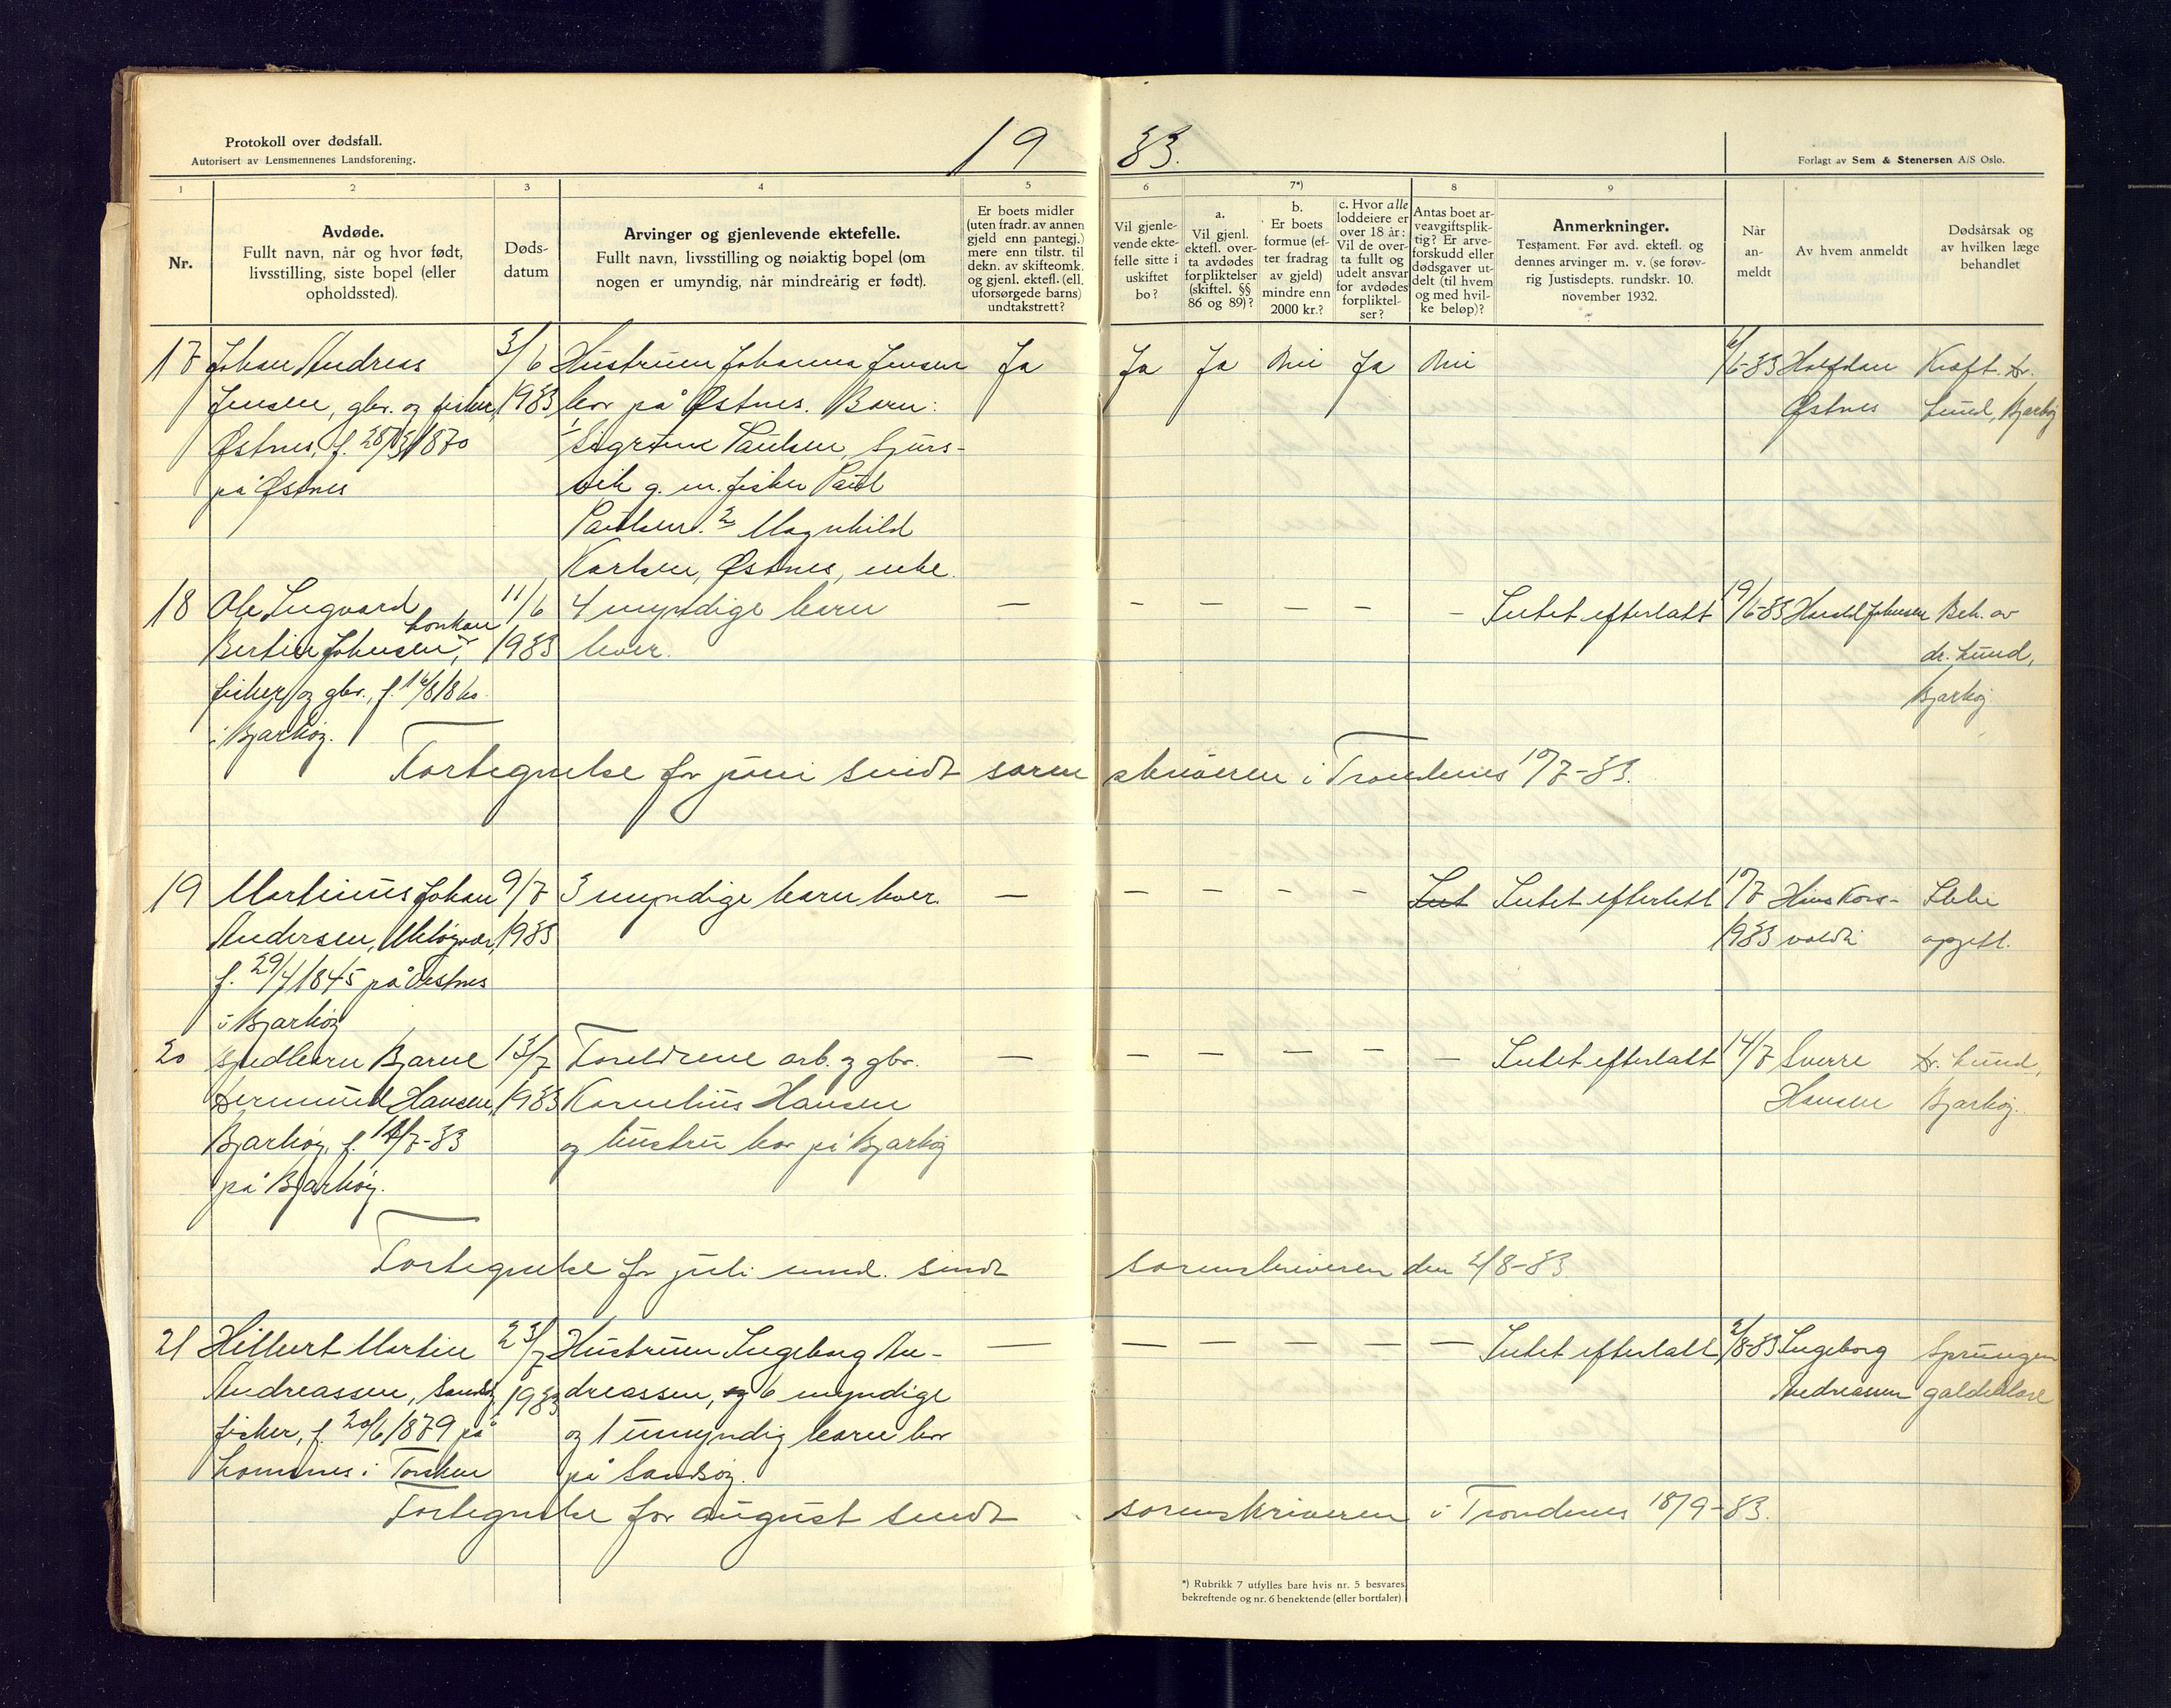 Protokoll over dødsfall.
Autorisert av Lensmennenes Landsforening.
19 33.
Forlagt av Sem & Stenersen A/S Oslo.
1 2 3 4 5 6 7*) 8 9
Nr.
Avdøde.
Fullt navn, når og hvor født,
livsstilling, siste bopel (eller
opholdssted).
Døds-
datum
Arvinger og gjenlevende ektefelle.
Fullt navn, livsstilling og nøiaktig bopel (om
nogen er umyndig, når mindreårig er født).
Er boets midler
(uten fradr. av annen
gjeld enn pantegj.)
mere enn tilstr. til
dekn. av skifteomk.
og gjenl. ektefl. (ell.
uforsørgede barns)
undtakstrett?
Vil gjenle-
vende ekte-
felle sitte i
uskiftet
bo?
a.
Vil gjenl.
ektefl. over-
ta avdødes
forpliktelser
(skiftel. §§
86 og 89)?
b.
Er boets
formue (ef-
ter fradrag
av gjeld)
mindre enn
2000 kr.?
c. Hvor alle
loddeiere er
over 18 år:
Vil de over-
ta fullt og
udelt ansvar
for avdødes
forpliktel-
ser?
Antas boet ar-
veavgiftsplik-
tig? Er arve-
forskudd eller
dødsgaver ut-
delt (til hvem
og med hvil-
ke beløp)?
Anmerkninger.
Testament. Før avd. ektefl. og
dennes arvinger m. v. (se forøv-
rig Justisdepts. rundskr. 10.
november 1932.
Når
an-
meldt
Av hvem anmeldt
Dødsårsak og
av hvilken læge
behandlet
17 Johan Andreas
Jensen, gbr. og fisker,
Østnes, f. 28/3 1870
på Østnes
3/6
1933
Hustruen Johanna Jensen
bor på Østnes. Barn:
1/ Sigrune Paulsen, Sjurs-
vik g. m. fisker Paul
Paulsen. 2/ Magnhild
Karlsen, Østnes, enke.
Ja Ja Ja Nei Ja Nei
6/6-33 Halfdan
Østnes
Kræft. Dr.
Lund, Bjarkøy
18 Ole Ingvard
Bertin Johnsen,
fisker og gbr., f.
i Bjarkøy.
11/6
1933
4 myndige barn
lever.
— — — — — — Intet efterlatt
19/6-33 Harald Johnsen
Beh. av
dr. Lund,
Bjarkøy
Fortegnelse for juni sendt sorenskriveren i Trondenes 10/7-33.
19 Martinus Johan
Andersen, Meløyvær,
f. 29/4 1845 på Østnes
i Bjarkøy
9/7
1933
3 myndige barn lever.
— — — — — Int Intet efterlatt
10/7
1933
Hans Kors-
voldi
Ikke
opgitt.
20 Spedbarn Bjarne
Hansen,
Bjarkøy, f. 12/7-33
på Bjarkøy.
13/7
1933
Foreldrene arb. og gbr.
Kornelius Hansen
og hustru bor på Bjarkøy
— — — — — — Intet efterlatt
14/7 Sverre
Hansen
Dr. Lund,
Bjarkøy.
Fortegnelse for juli mnd. sendt sorenskriveren den 2/8-33
21 Hilbert Martin
Andreassen, Sandsøy
fisker, f. 20/6 1879 på
i Torsken
23/7
1933
Hustruen Ingeborg An-
dreassen, og 6 myndige
og 1 umyndig barn bor
på Sandsøy.
— — — — — — Intet efterlatt
2/8-33 Ingeborg
Andreassen
Sprungen
galdeblære
Fortegnelse for august sendt sorenskriveren i Trondenes 18/9-33.
*) Rubrikk 7 utfylles bare hvis nr. 5 besvares
bekreftende og nr. 6 benektende (eller bortfaler)